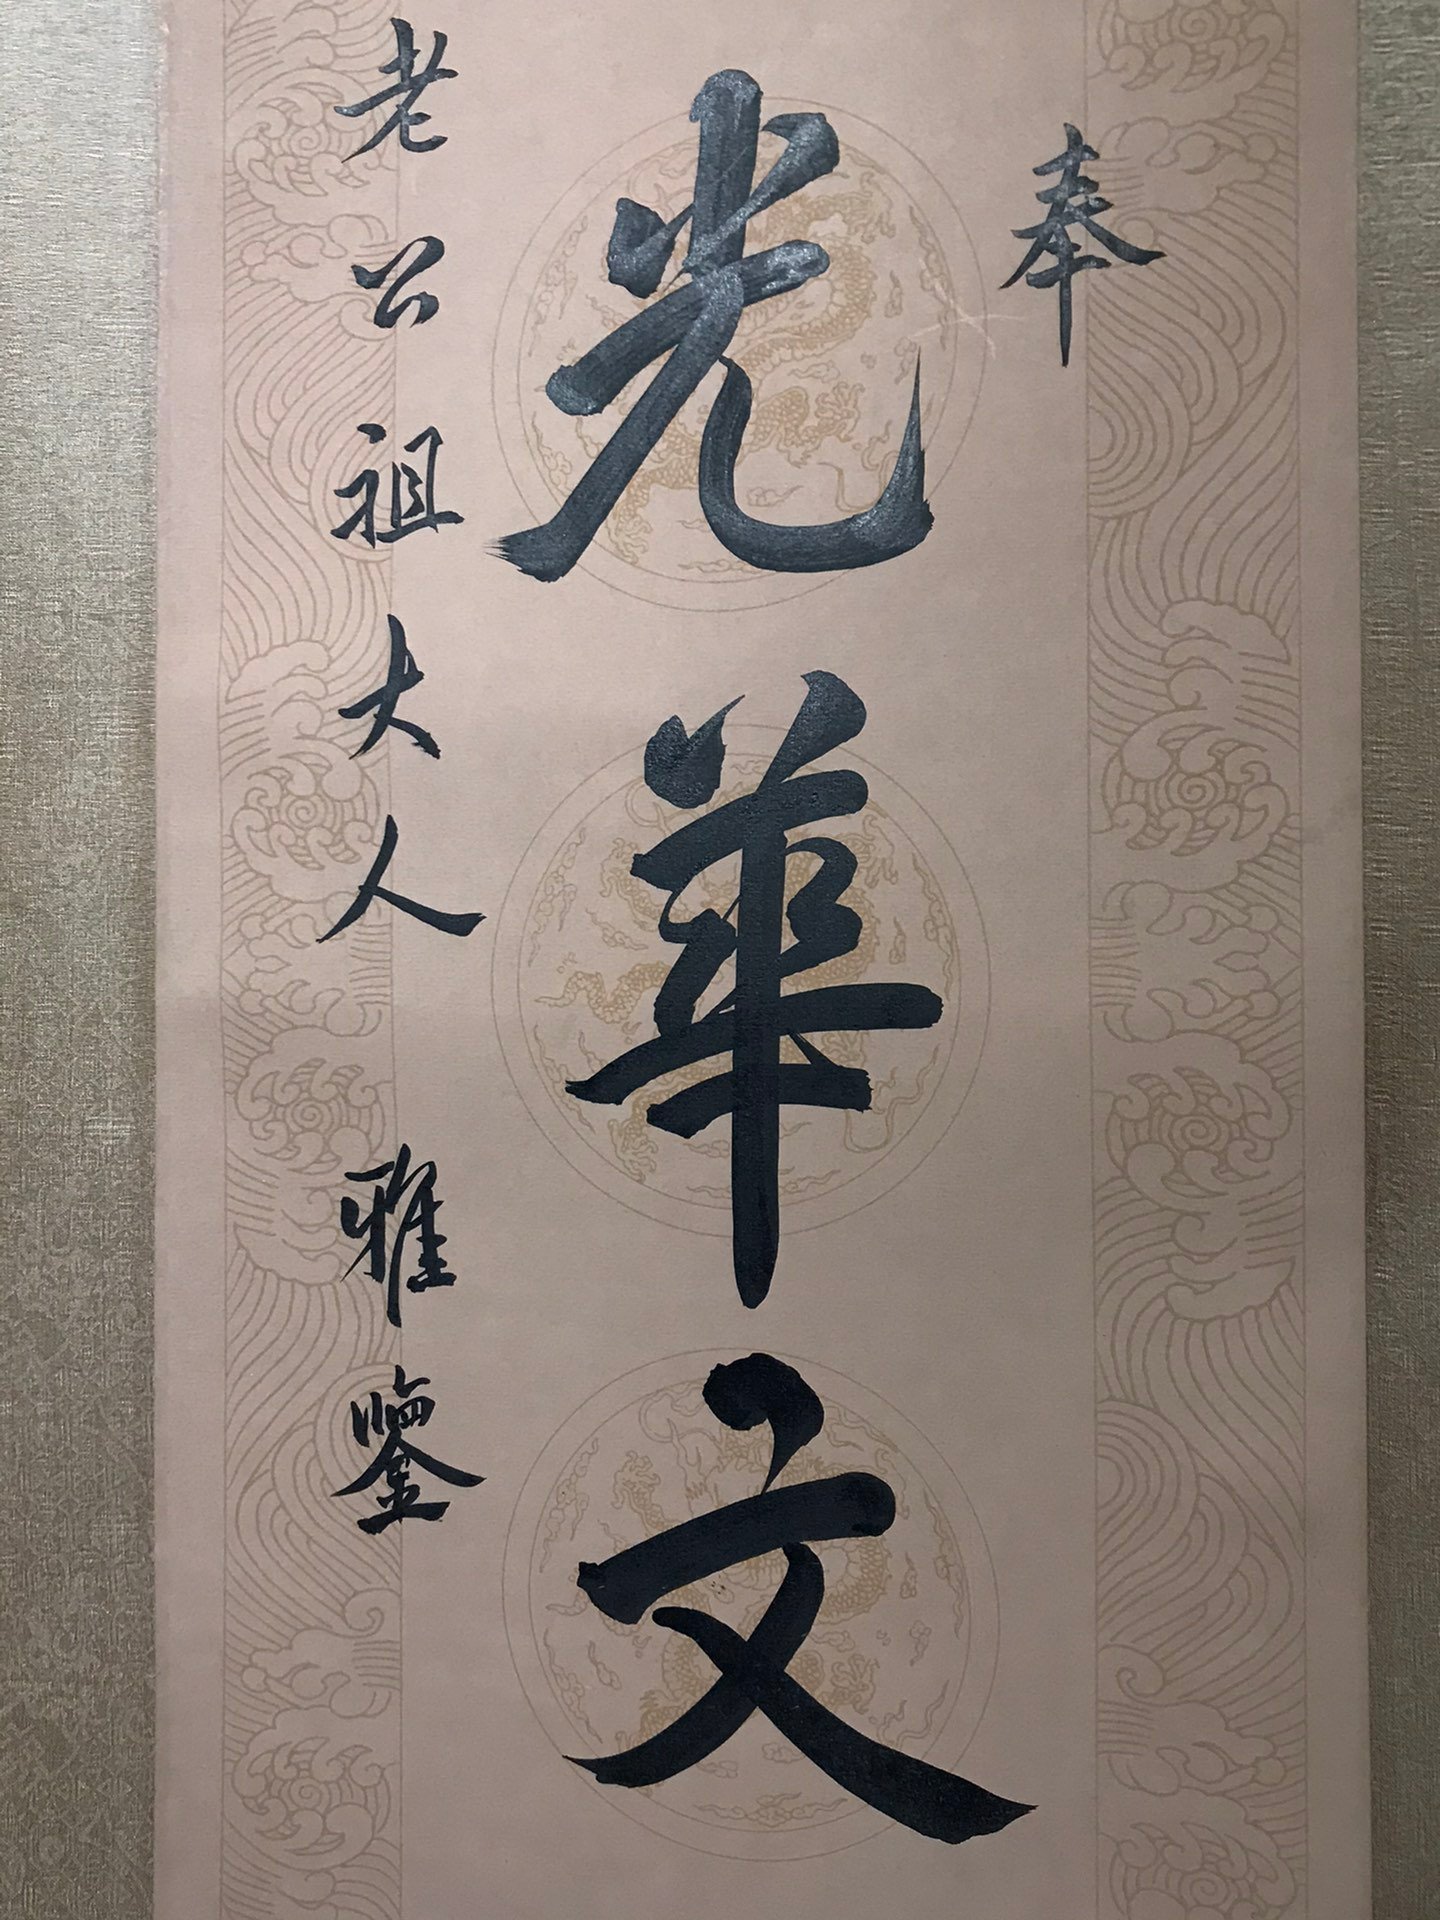 奉
光華文
老公祖大人 雅鑒